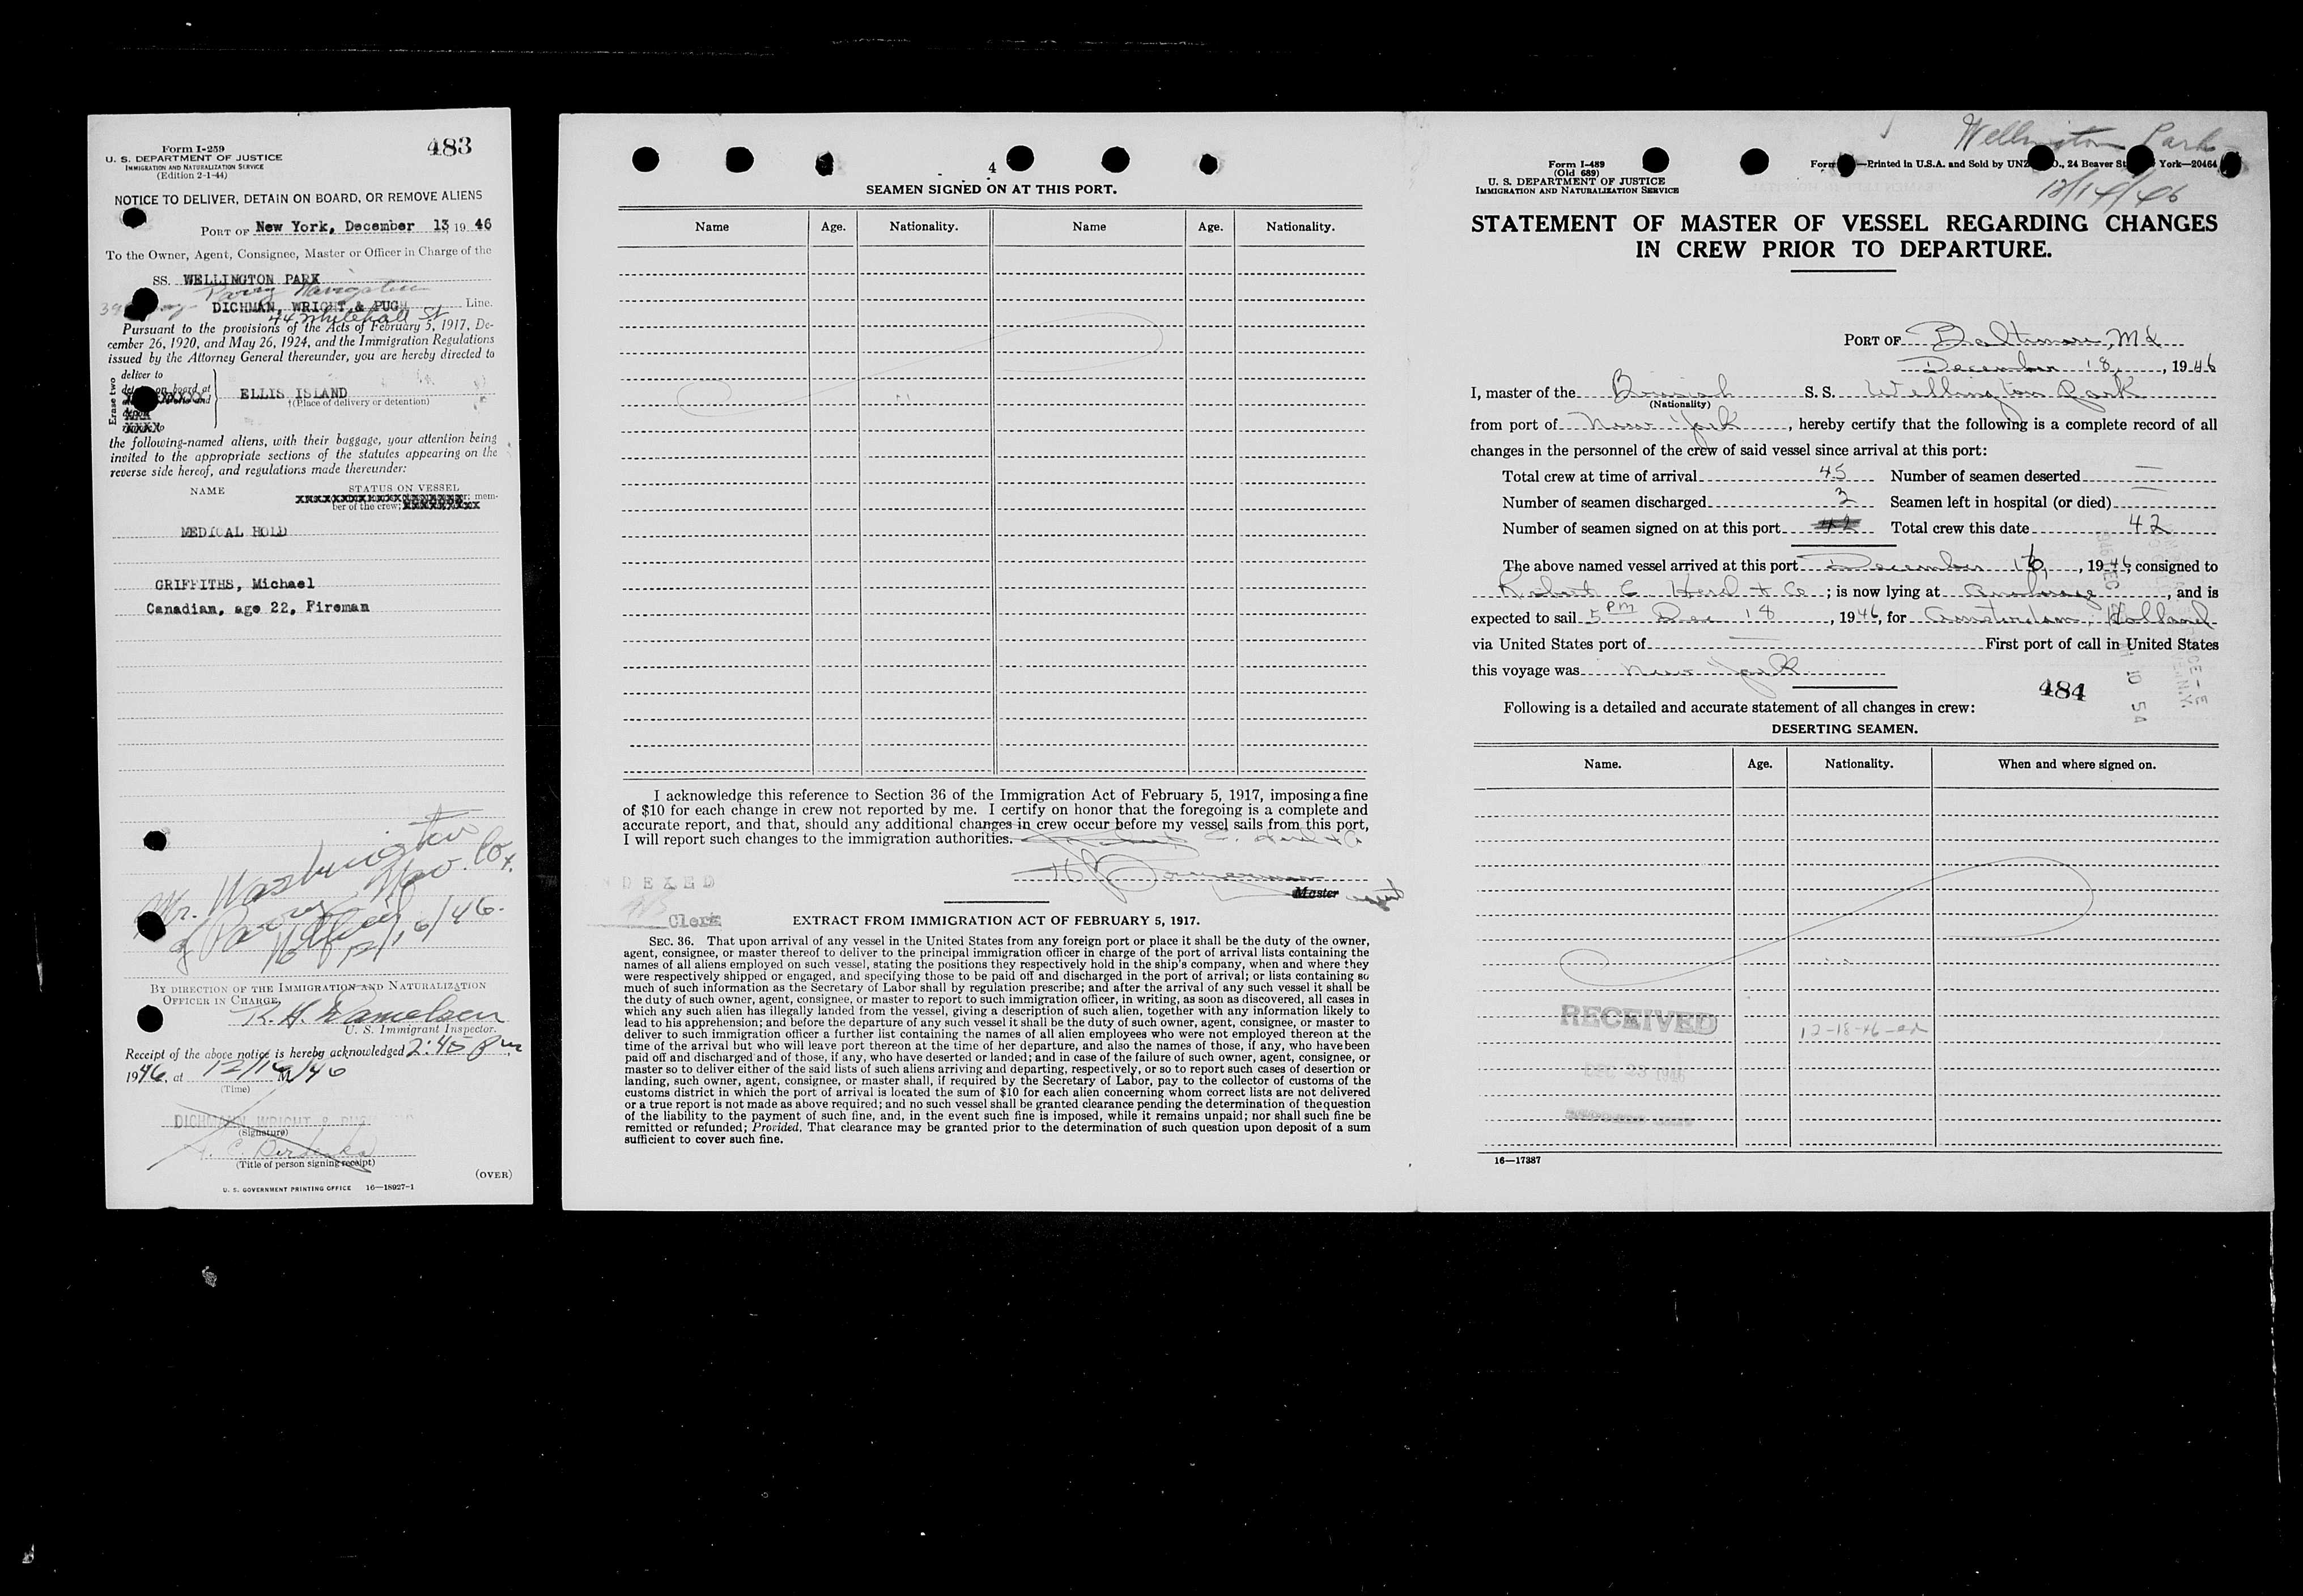 483
Form I-259
U. S. DEPARTMENT OF JUSTICE
IMMIGRATION AND NATURALIZATION SERVICE
(Edition 2-1-44)
NOTICE TO DELIVER, DETAIN ON BOARD, OR REMOVE ALIENS
PORT OF New York, December 13 19 46
To the Owner, Agent, Consignee, Master or Officer in Charge of the
SS. WELLINGTON PARK
Parry Navigation
DICHMAN, WRIGHT & PUGH Line.
44 Whitehall St
Pursuant to the provisions of the Acts of February 5, 1917, De-
cember 26, 1920, and May 26, 1924, and the Immigration Regulations
issued by the Attorney General thereunder, you are hereby directed to
Erase two
deliver to
ELLIS ISLAND
†(Place of delivery or detention)
the following-named aliens, with their baggage, your attention being
invited to the appropriate sections of the statutes appearing on the
reverse side hereof, and regulations made thereunder:
NAME STATUS ON VESSEL
mem-
ber of the crew;
MEDICAL HOLD
GRIFFITHS, Michael
Canadian, age 22, Fireman
Mr. Washington
of Parry Nav. Co.
12/16/46
BY DIRECTION OF THE IMMIGRATION AND NATURALIZATION
OFFICER IN CHARGE
R. H. Danielsen
U. S. Immigrant Inspector.
Receipt of the above notice is hereby acknowledged 2:45 pm
1946, at 12/16/46 M
(Time)
DICHMANN WRIGHT & PUGH
(Signature)
(Title of person signing receipt)
(OVER)
U. S. GOVERNMENT PRINTING OFFICE 16—18927-1
4
SEAMEN SIGNED ON AT THIS PORT.
Name Age. Nationality. Name Age. Nationality.
I acknowledge this reference to Section 36 of the Immigration Act of February 5, 1917, imposing a fine
of $10 for each change in crew not reported by me. I certify on honor that the foregoing is a complete and
accurate report, and that, should any additional changes in crew occur before my vessel sails from this port,
I will report such changes to the immigration authorities. Robert C. Herd & Co
Master agent
INDEXED
Clerk
EXTRACT FROM IMMIGRATION ACT OF FEBRUARY 5, 1917.
SEC. 36. That upon arrival of any vessel in the United States from any foreign port or place it shall be the duty of the owner,
agent, consignee, or master thereof to deliver to the principal immigration officer in charge of the port of arrival lists containing the
names of all aliens employed on such vessel, stating the positions they respectively hold in the ship's company, when and where they
were respectively shipped or engaged, and specifying those to be paid off and discharged in the port of arrival; or lists containing so
much of such information as the Secretary of Labor shall by regulation prescribe; and after the arrival of any such vessel it shall be
the duty of such owner, agent, consignee, or master to report to such immigration officer, in writing, as soon as discovered, all cases in
which any such alien has illegally landed from the vessel, giving a description of such alien, together with any information likely to
lead to his apprehension; and before the departure of any such vessel it shall be the duty of such owner, agent, consignee, or master to
deliver to such immigration officer a further list containing the names of all alien employees who were not employed thereon at the
time of the arrival but who will leave port thereon at the time of her departure, and also the names of those, if any, who have been
paid off and discharged and of those, if any, who have deserted or landed; and in case of the failure of such owner, agent, consignee, or
master so to deliver either of the said lists of such aliens arriving and departing, respectively, or so to report such cases of desertion or
landing, such owner, agent, consignee, or master shall, if required by the Secretary of Labor, pay to the collector of customs of the
customs district in which the port of arrival is located the sum of $10 for each alien concerning whom correct lists are not delivered
or a true report is not made as above required; and no such vessel shall be granted clearance pending the determination of the question
of the liability to the payment of such fine, and, in the event such fine is imposed, while it remains unpaid; nor shall such fine be
remitted or refunded; Provided, That clearance may be granted prior to the determination of such question upon deposit of a sum
sufficient to cover such fine.
Wellington Park
Form I-489
(Old 689)
U. S. DEPARTMENT OF JUSTICE
IMMIGRATION AND NATURALIZATION SERVICE
Form —Printed in U.S.A. and Sold by UNZ O., 24 Beaver St York—20464
12/14/46
STATEMENT OF MASTER OF VESSEL REGARDING CHANGES
IN CREW PRIOR TO DEPARTURE.
PORT OF Baltimore, Md
December 18, 1946
I, master of the British S. S. Wellington Park
(Nationality)
from port of New York, hereby certify that the following is a complete record of all
changes in the personnel of the crew of said vessel since arrival at this port:
Total crew at time of arrival 45 Number of seamen deserted —
Number of seamen discharged 3 Seamen left in hospital (or died) —
Number of seamen signed on at this port 42 Total crew this date 42
The above named vessel arrived at this port December 16, 1946, consigned to
Robert C Herd & Co; is now lying at Anchorage, and is
expected to sail 5 PM Dec 18, 1946, for Amsterdam, Holland
via United States port of — First port of call in United States
this voyage was New York
484
Following is a detailed and accurate statement of all changes in crew:
DESERTING SEAMEN.
Name. Age. Nationality. When and where signed on.
RECEIVED
12-18-46
DEC 23 1946
16—17387